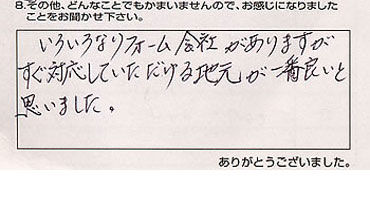 8.その他、どんなことでもかまいませんので、お感じになりました
ことをお聞かせ下さい。
いろいろなリフォーム会社がありますが
すぐ対応していただける地元が一番良いと
思いました。
ありがとうございました。